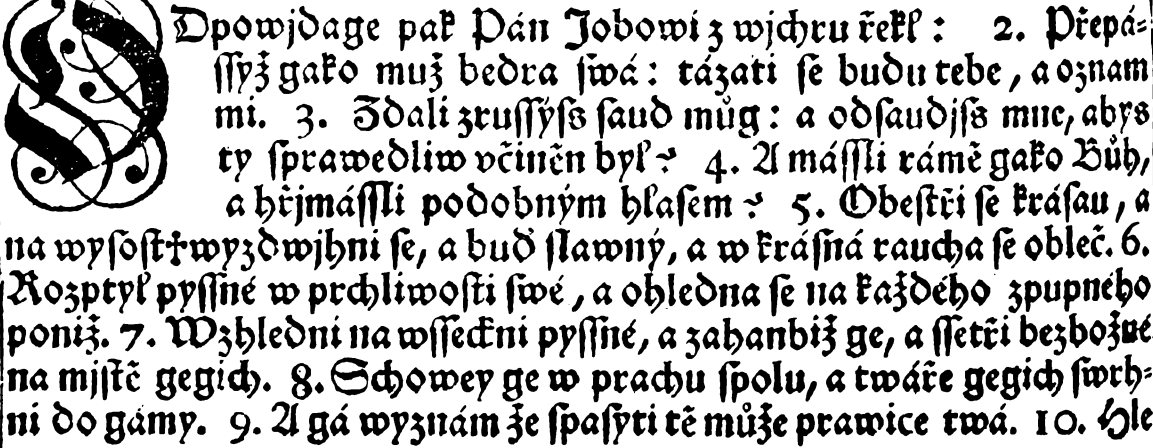 ODpowjdage pak Pán Jobowi z wjchru řekl: 2. Přepá-
ſſyž gako muž bedra ſwá: tázati ſe budu tebe, a oznam
mi. 3. Zdali zruſſýſs ſaud můg: a odſaudjſs mne, abys
ty ſprawedliw včiněn byl? 4. A máſſli rámě gako Bůh,
a hřjmáſſli podobným hlaſem? 5. Obeſtři ſe kráſau, a
na wyſoſt†wyzdwjhni ſe, a buď ſlawný, a w kráſná raucha ſe obleč. 6.
Rozptyl pyſſné w prchliwoſti ſwé, a ohledna ſe na každého zpupného
poniž. 7. Wzhledni na wſſeckni pyſſné, a zahanbiž ge, a ſſetři bezbožné
na mjſtě gegich. 8. Schowey ge w prachu ſpolu, a twáře gegich ſwrh-
ni do gámy. 9. A gá wyznám že ſpaſyti tě může prawice twá. 10. Hle